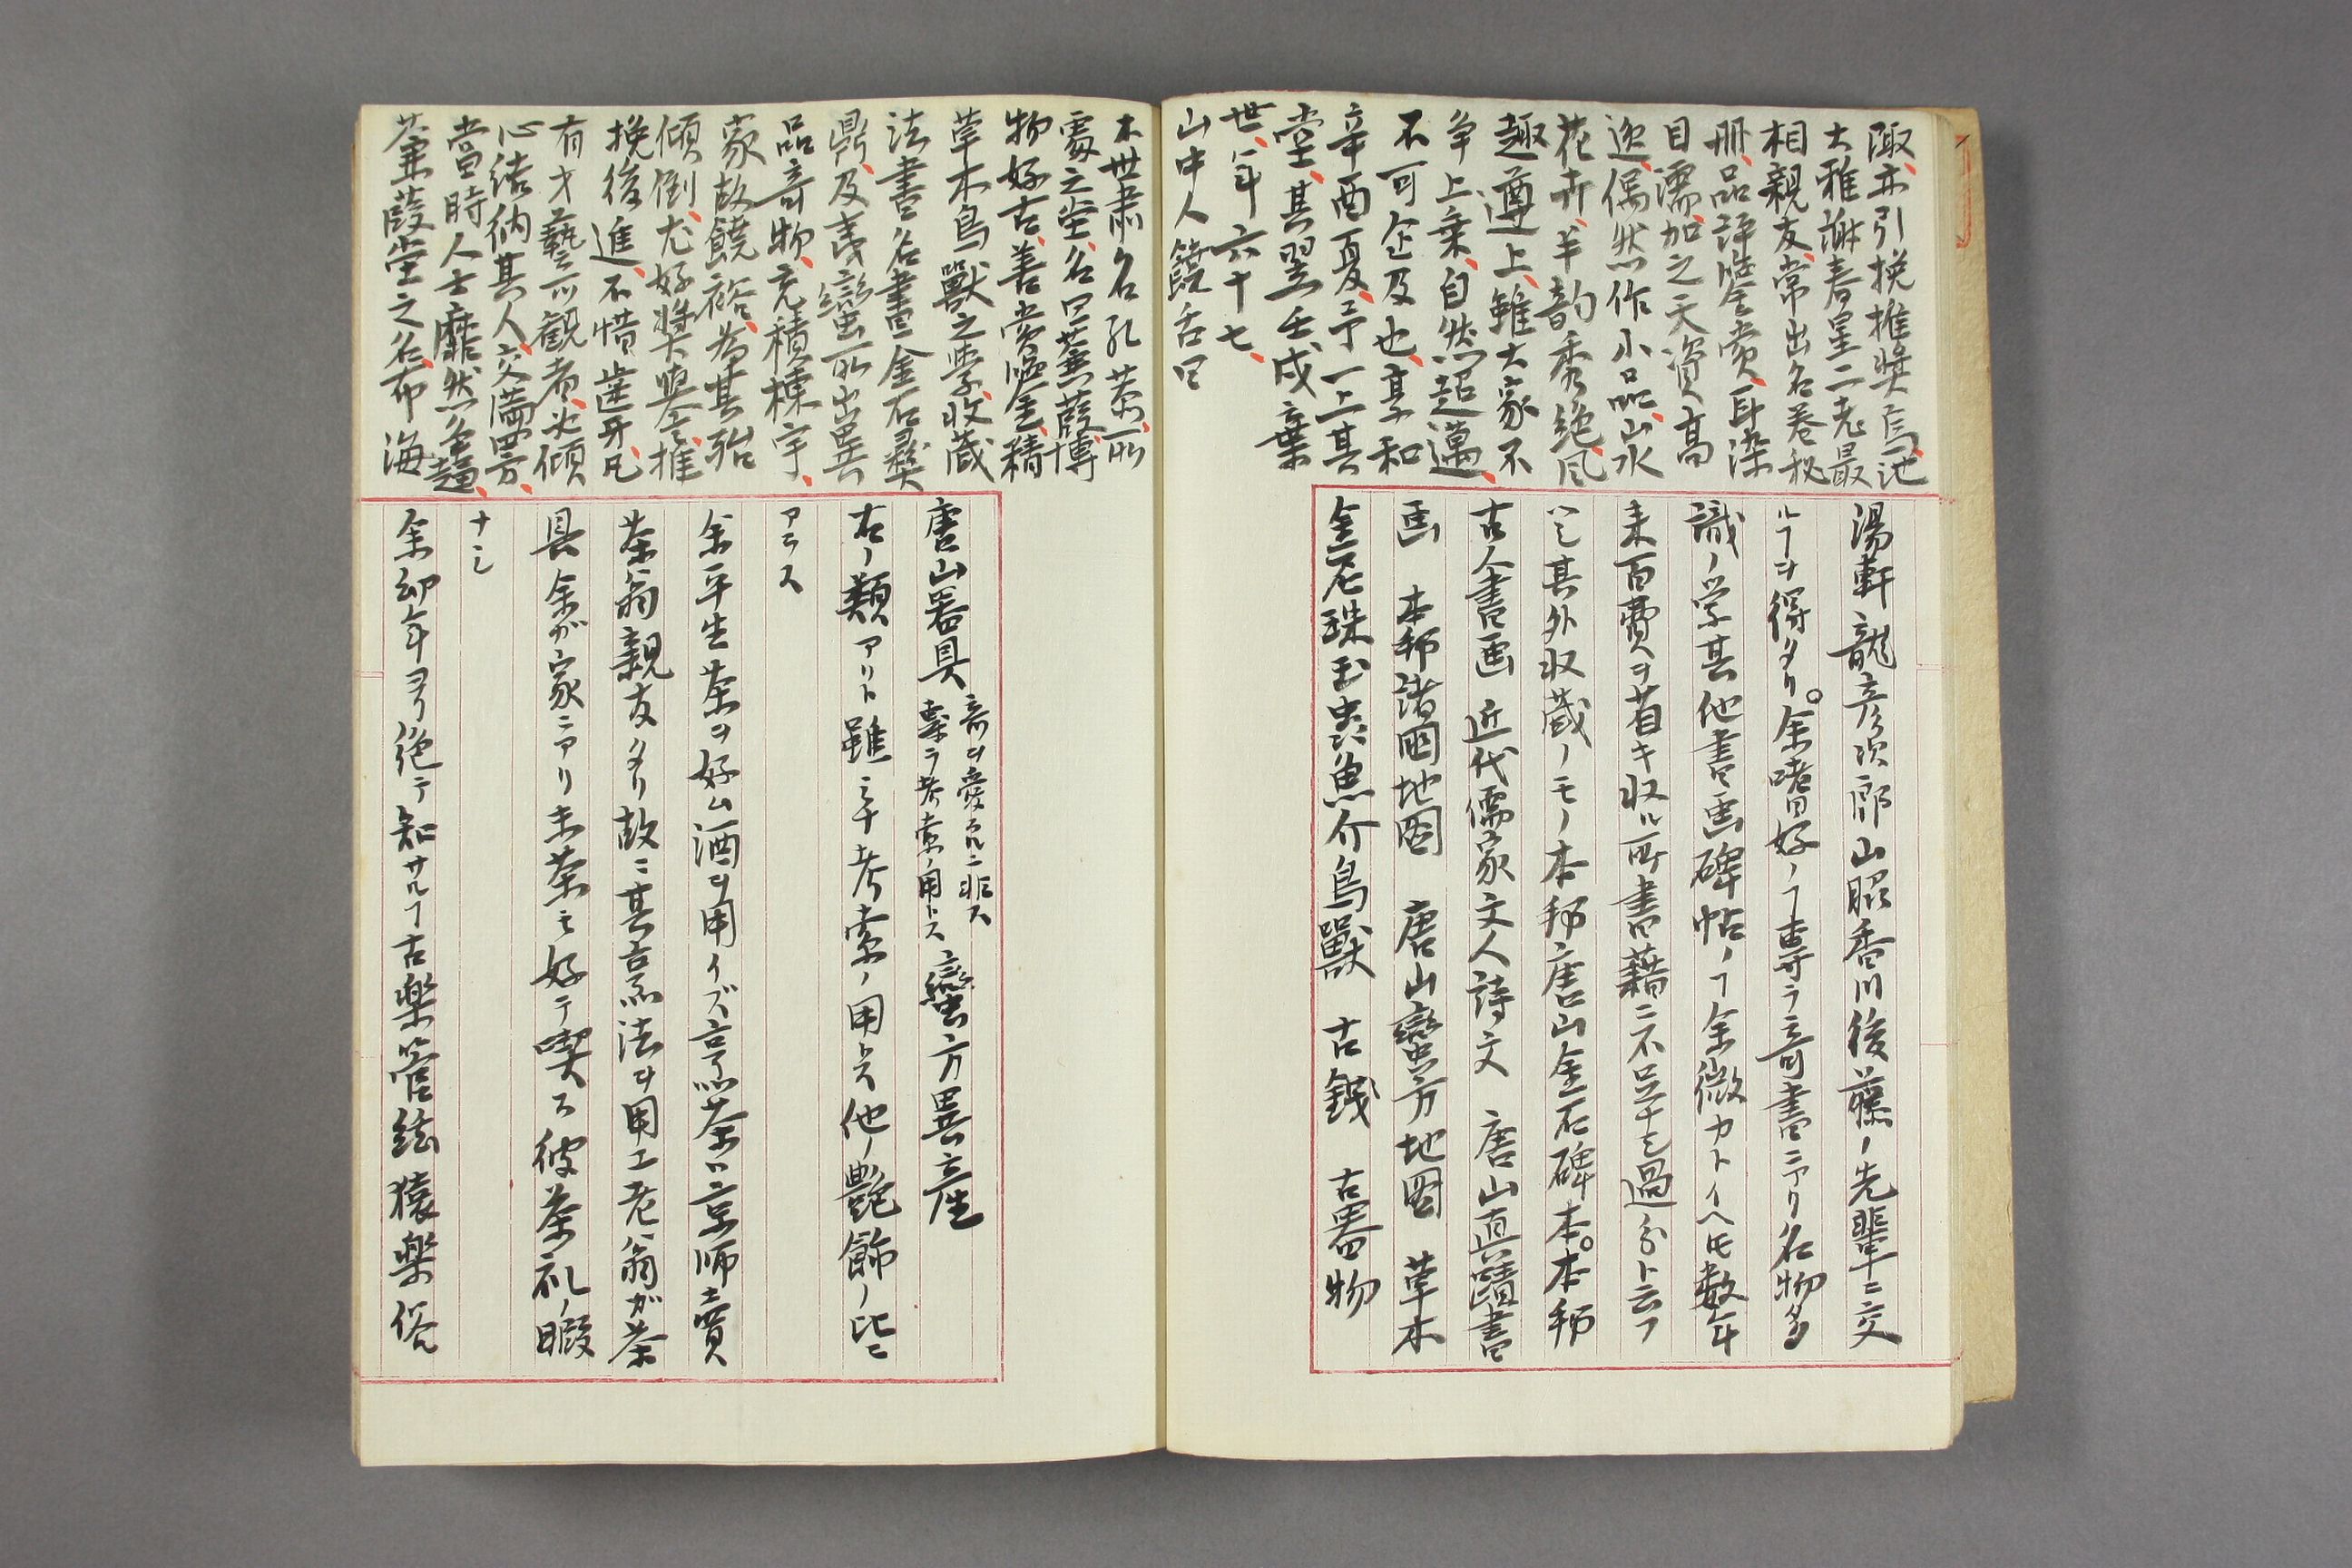 陬、亦引挽推奨焉、池
大雅謝春星二老最
相親友、常出名巻秘
冊、品評鑒賞、耳染
目濡、加之天資高
逸、偶然作小品、山水
花卉、羊韵秀絶、風
趣遵上、雖大家不
争上乗、自然超邁、
不可企及也、享和
辛酉夏、予一上其
堂、其翌壬戌棄
世、年六十七、
山中人饒舌曰
木世肅名孔恭、所
處之堂、名曰蒹葭、博
物好古、善賞鑒、精
草木鳥獸之學、收蔵
法書名畫金石彝
鼎、及夷蠻所出異
品竒物、充積棟宇、
家故饒裕、為其殆
傾倒、尤好奬與、推
挽後進、不惜齒牙、凡
有才藝可観者、必傾
心結納其人、交満四方、
當時人士靡然争趨、
蒹葭堂之名、布海
湯軒龍彦次郎山昭香川後藤ノ先輩ニ交
ルヿヲ得タリ。余嗜好ノヿ専ラ竒書ニアリ名物多
識ノ学其他書画碑帖ノヿ余微カトイヘ𪜈数年
来百費ヲ省キ収ル所書籍ニ不足ナシ過分ト云フ
ヘシ其外収蔵ノモノ本邦唐山金石碑本。本邦
古人書画　近代儒家文人詩文　唐山真蹟書
画　本邦諸国地図　唐山蠻方地図　草木
金石珠玉虫魚介鳥獸　古銭　古器物
唐山器具 竒ヲ愛スルニ非ス 専ラ考索ノ用トス 蠻方異産
右ノ類アリト雖ミナ考索ノ用トス他ノ艶飾ノ比ニ
アラス
余平生茶ヲ好ム酒ヲ用イズ烹茶ハ京師賣
茶翁親友タリ故ニ其烹法ヲ用エ老翁ガ茶
具余ガ家ニアリ末茶モ好テ喫ス彼茶礼ノ暇
ナシ
余幼年ヨリ絶テ知サルヿ古楽管絃猿楽俗